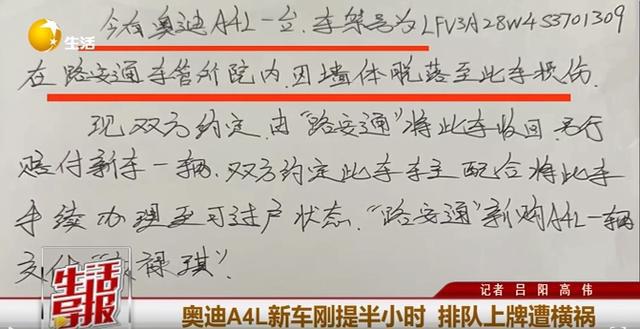 生活
今有奥迪A4L一台,车架号为LFV3A28W4S3701309
在路安通车管所院内,因墙体脱落至此车损伤.
现双方约定,由“路安通”将此车收回,另行
赔付新车一辆.双方约定此车车主配合将此车
手续办理至可过户状态.“路安通”新购A4L一辆
交付
禄琪”.
生活导报
记者 吕阳 高伟
奥迪A4L新车刚提半小时 排队上牌遭横祸